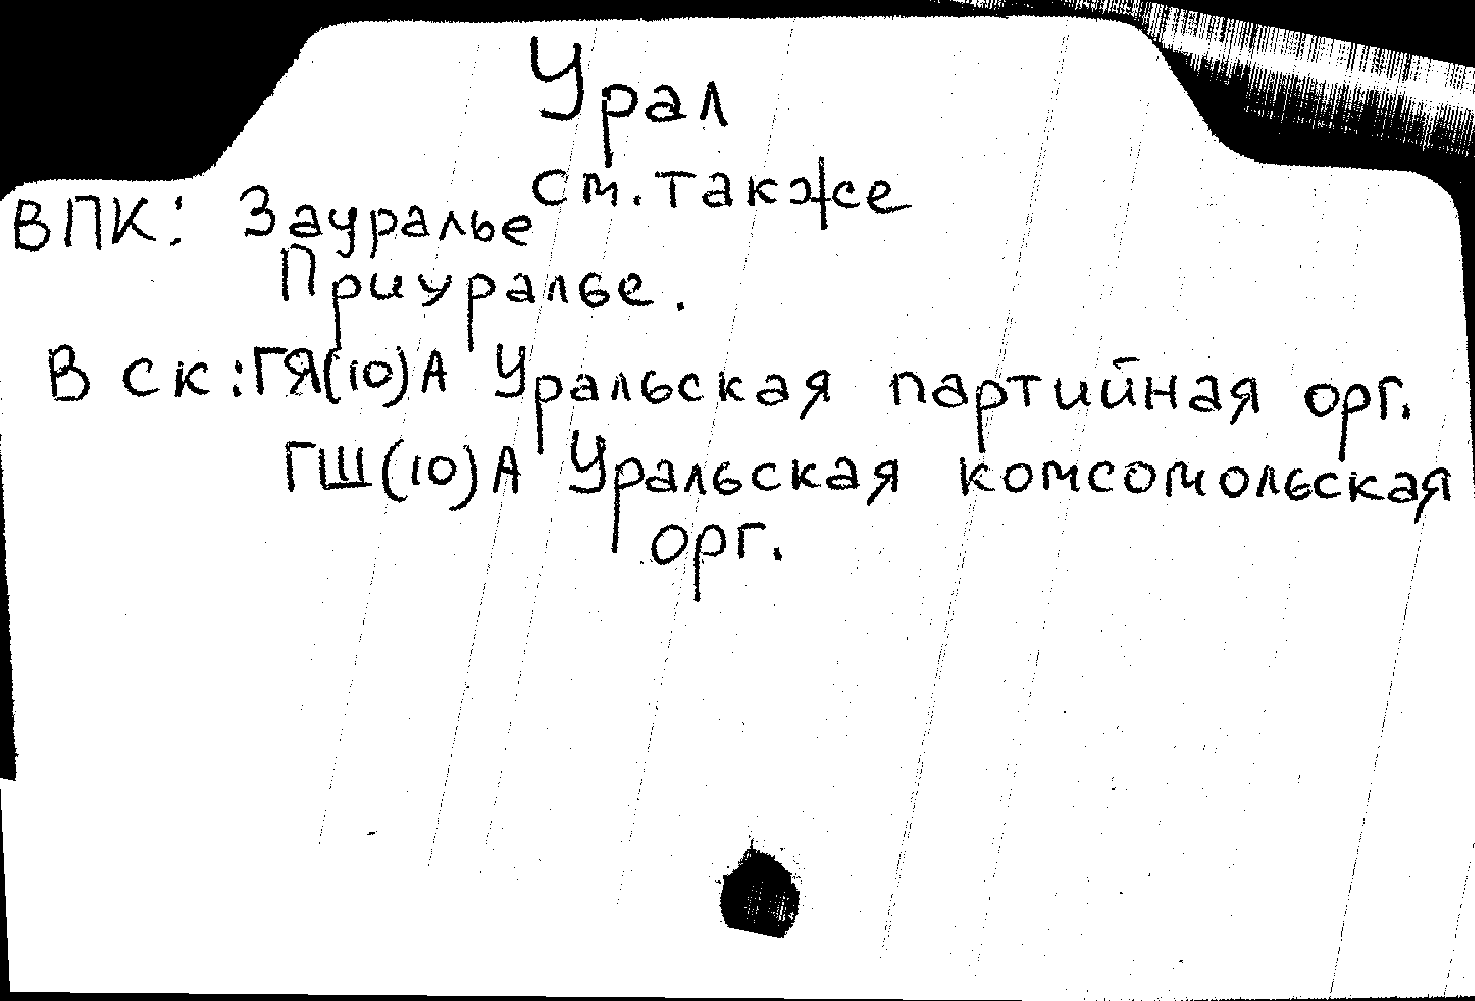 Урал
см. также
ВПК: Зауралье
Приуралье.
В ск: ГЯ(10)А Уральская партийная орг.
ГШ(10)А Уральская комсомольская
орг.